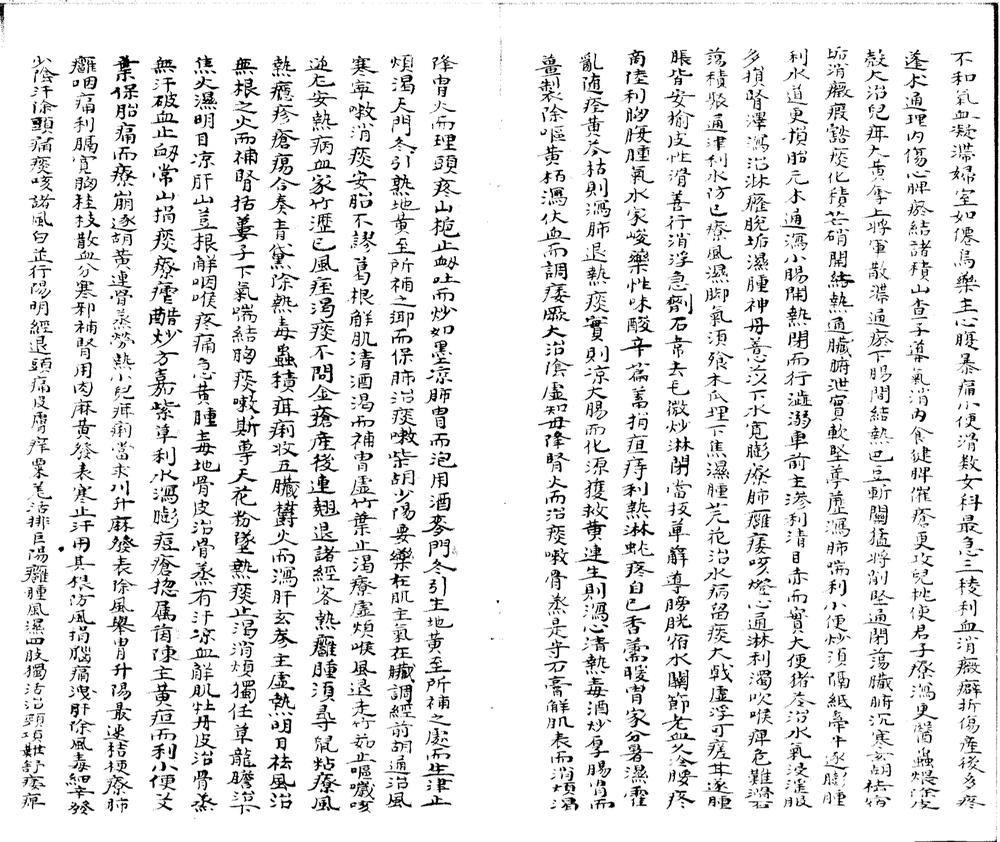 不和氣血凝滯婦室如僊烏藥主心腹暴痛小便滑数女科最急三棱利血消癥癖折傷產後多疼
蓬术通理内傷心脾疼結諸積山查子導氣消肉食健脾催瘡更攻兒枕使君子療瀉更醫蟲煨除皮
殼大治兒疳大黄号上將軍散濃通瘀下腸間結熱巴豆斬関猛將削堅通閉荡臟腑沉寒玄胡枯
垢消癥瘕豁痰化積芒硝開結熱通臟腑泄實軟堅葶藶瀉肺喘利小便炒須隔紙牽牛逐膨腫
利水道更損胎元木通瀉小腸開熱閉而行澁溺車前主滲利清目赤而實大便猪苓治水氣浸淫服
多損腎澤瀉治淋癃脫垢濕腫神丹薏苡下水寬膨療肺癰痿咳燈心通淋利濁吹喉痺危難滑石
荡積聚通津利水防已療風濕脚氣須飧木瓜埋下焦濕腫芫花治水病留痰大戟虛浮可瘥甘遂腫
脹皆安榆皮性滑善行消浮急劑石韋去毛微炒淋閉當投萆薢導膀胱宿水關節老血久冷腰疼
商陸利胸腹腫氣水家峻藥性味酸辛萹蓄捎疸痔利熱淋蚘疼自已香薷暖胃家分暑濕霍
亂随瘥黄芩枯則瀉肺退熱痰實則凉大腸而化源獲救黄連生則瀉心清熱毒酒炒厚腸胃而
薑製除嘔黄柏瀉伏血而調痿厥大治陰虛知母降腎火而治痰嗽骨蒸是守石膏解肌表而消煩渴
降胃火而理頭疼山梔止衂吐而炒如墨凉肺胃而泡用酒麥門冬引生地黄至所補之處而生津止
煩渴天門冬引熟地黄至所補之鄊而保肺治痰嗽柴胡少陽要藥在肌主氣在臟調經前胡通治風
寒寧嗽消痰安胎不謬葛根解肌清酒渴而補胃虛竹葉止渴療虛煩喉風退走竹茹止嘔噦咳
逆尤安熱病血家竹瀝已風痓渴痰不問金瘡產後連翹退諸經客熱癰腫須尋鼠粘療風
熱癮疹瘡瘍合奏青黛除熱毒蟲積疳痢收五臟欝火而瀉肝玄參主虛熱明目祛風治
無根之火而補腎括蔞子下氣喘結胸痰嗽斯專天花粉墜熱痰止渴消煩獨任草龍膽治下
焦火濕明目凉肝山荳根解咽喉疼痛急黄腫毒地骨皮治骨蒸有汗凉血解肌牡丹皮治骨蒸
無汗破血止衂常山捎痰療瘧醋炒方嘉紫草利水瀉膨痘瘡揔属茵陳主黄疸而利小便艾
葉保胎痛而療崩逐胡黄連骨蒸勞熱小兒疳痢當求川升麻發表除風舉胃升陽最速桔梗療肺
癰咽痛利膈寬胸桂枝散血分寒邪補腎用肉麻黄發表寒止汗用其根防風捎腦痛洩肝除風毒細辛發
少陰汗除頭痛痰咳諸風白芷行陽明經退頭痛皮膚痒粟羌活排巨陽癰腫風濕四肢獨活治頸項難舒痿痺